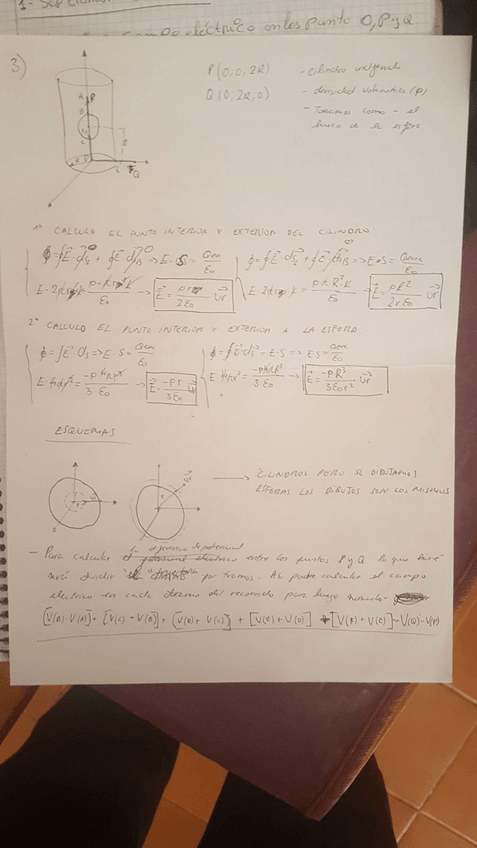 1- Sup
campo eléctrico en los punto O, P y Q
3)
P (0,0,2R)
Q (0,2R,0)
- cilindro
- densidad volumétrica (ρ)
- Tomamos como - el
hueco de la esfera
A
B
C
Q
1º CALCULO EL PUNTO INTERIOR Y EXTERIOR DEL CILINDRO
ϕ = ∮E·ds₁ + ∮E·ds₂ => E·S = Qenc/ε₀
ϕ = ∮E·ds₁ + ∮E·ds₂ => E·S = Qenc/ε₀
→ E = ρr/2ε₀ ur
→ E = ρR²/2rε₀ ur
2º CALCULO EL PUNTO INTERIOR Y EXTERIOR A LA ESFERA
ϕ = ∫E·ds => E·S = Qenc/ε₀
ϕ = ∮E·ds = E·S => E·S = Qenc/ε₀
→ E = -ρr/3ε₀ ur
→ E = -ρR³/3ε₀r² ur
ESQUEMAS
→ CILINDROS PERO SI DIBUJAMOS
ESFERAS LOS DIBUJOS SON LOS MISMOS
diferencia de potencial
- Para calcular entre los puntos P y Q lo que haré
será dividir por tramos. Así podré calcular el campo
eléctrico en cada tramo del recorrido para luego sumarlo
[V(B)-V(A)] + [V(C)-V(B)] + [V(D)+V(C)] + [V(E)+V(D)] + [V(F)+V(E)] = V(Q)-V(P)